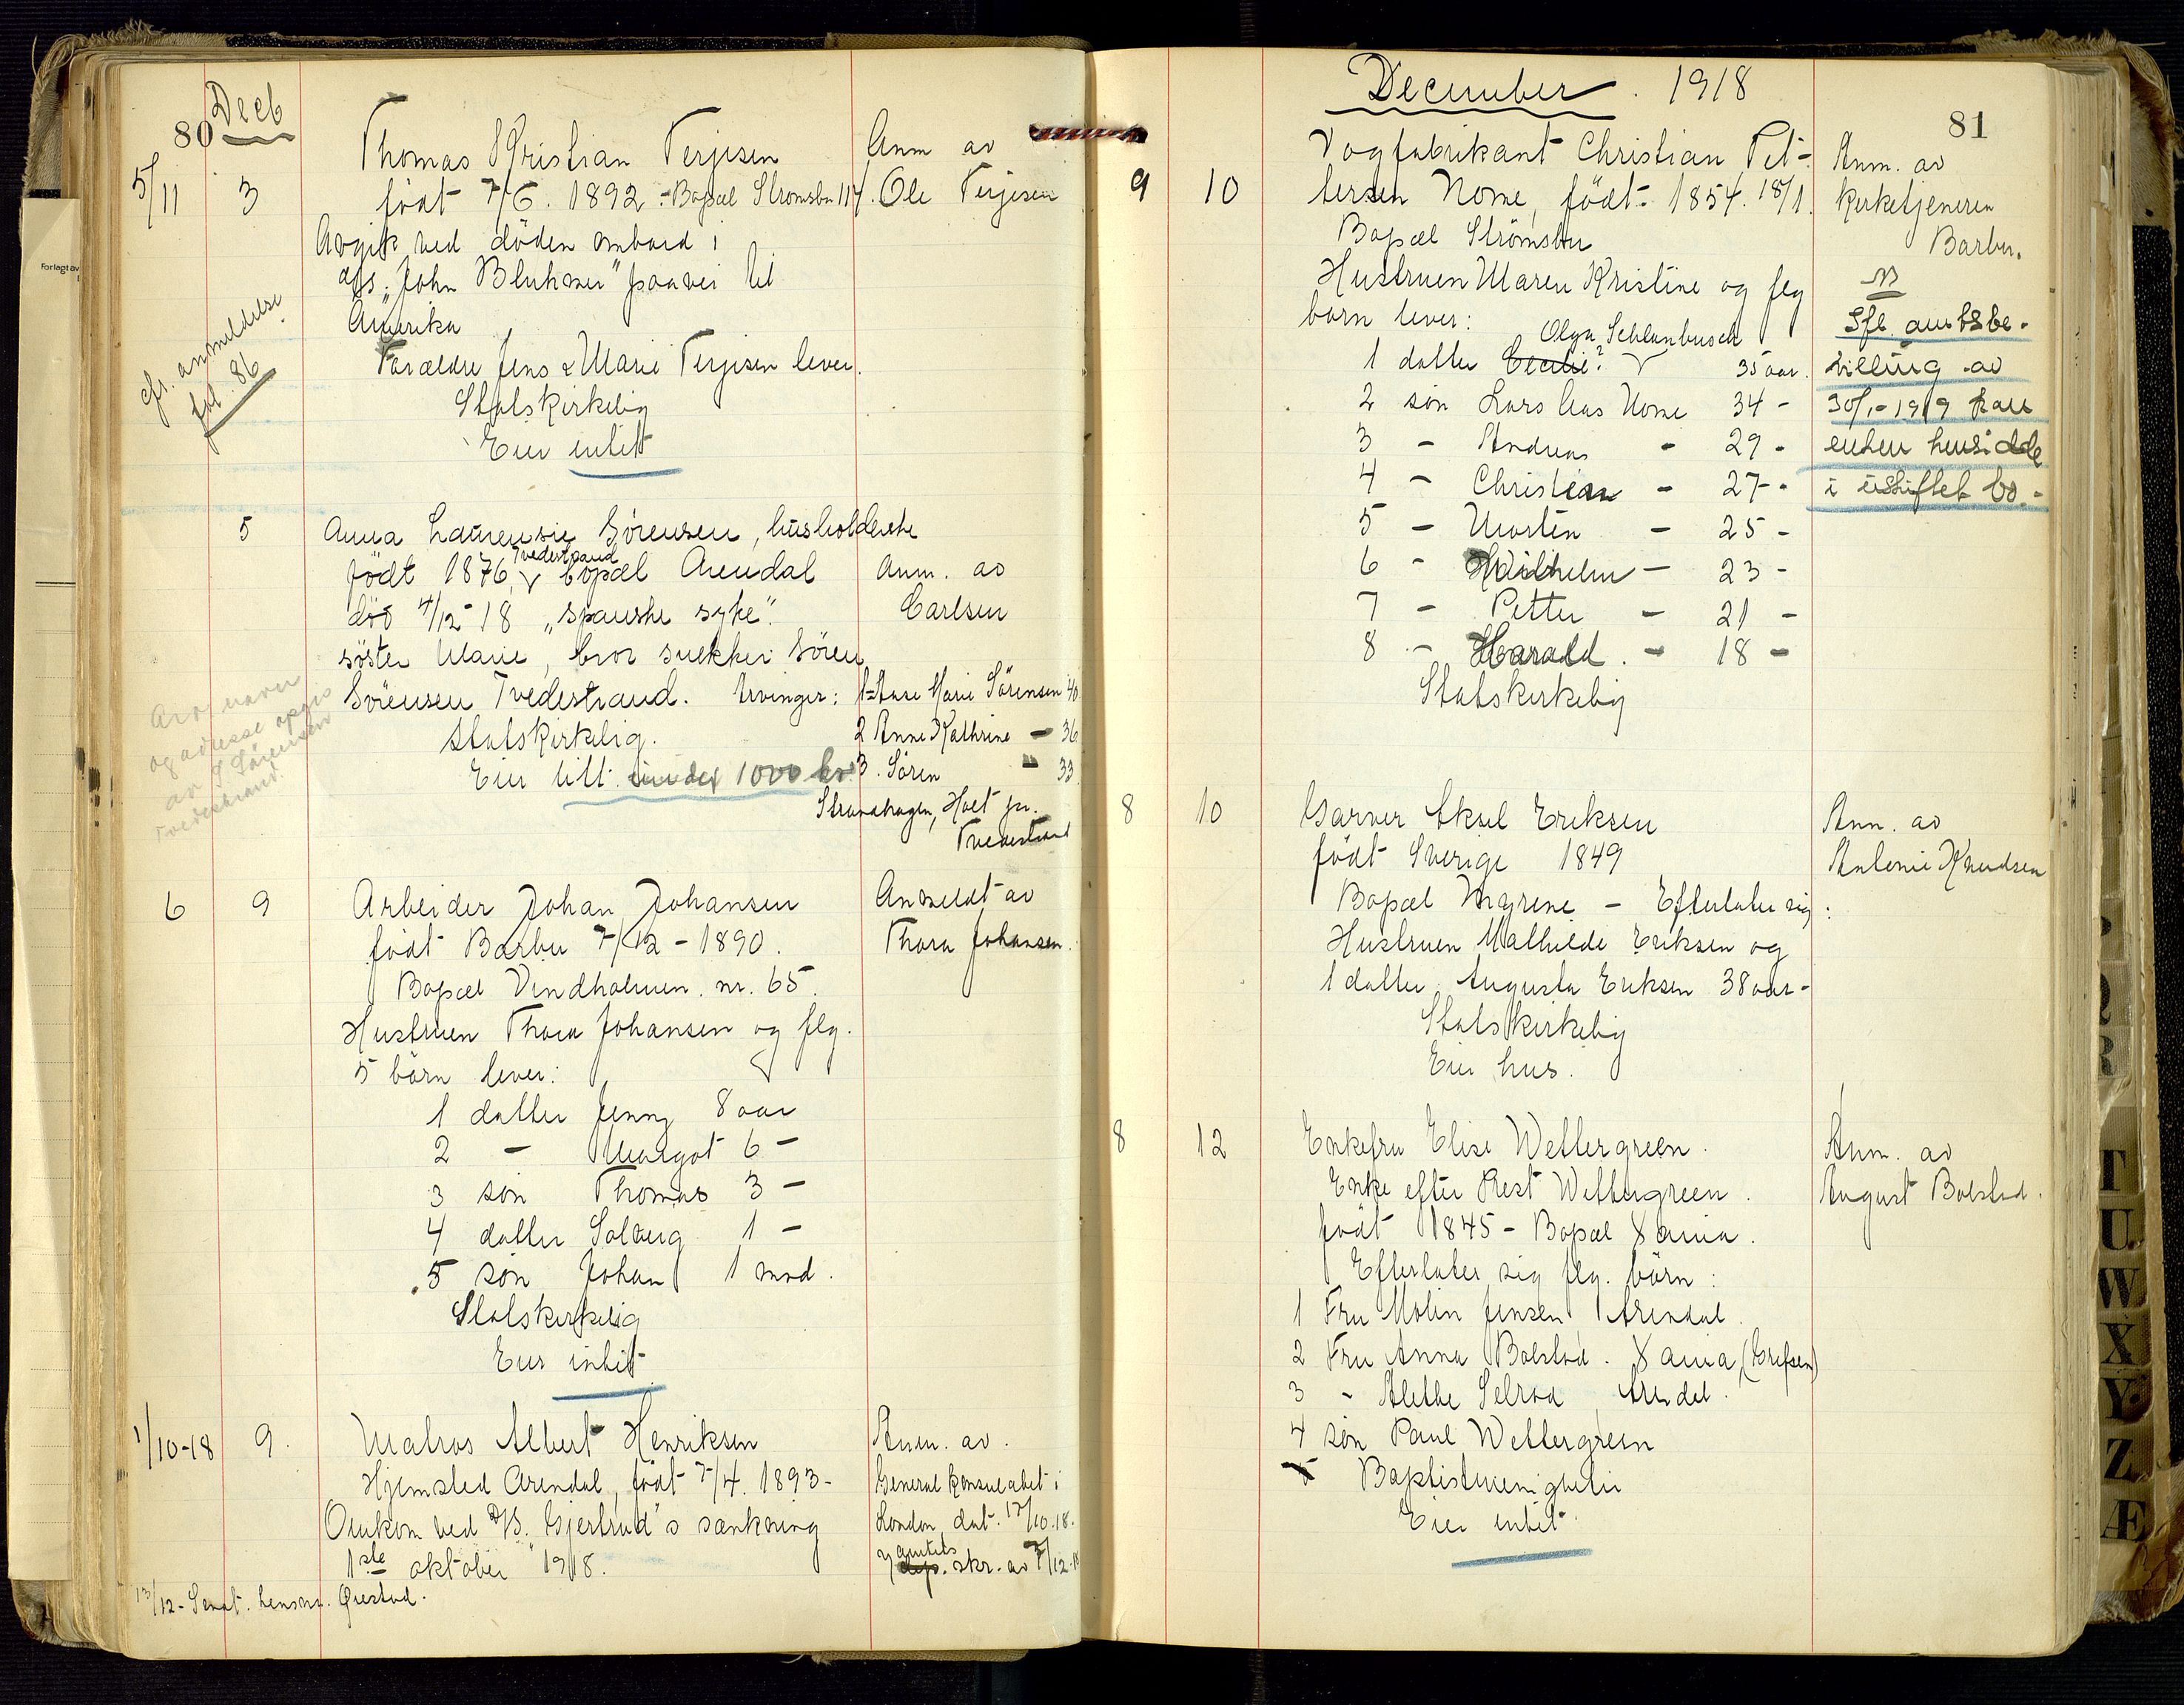 80 Decb
5/11 3 Thomas Kristian Terjesen Anm av
født 7/6. 1892 - Bopæl Strömsbu 117. Ole Terjesen
Avgik ved døden ombord i
d/s. "John Blumer" paavei til
Amerika
Forældre Jens & Marie Terjesen lever.
Statskirkelig
Eier intet
cfr. anmeldelse
fol. 86
5 Anna Laurensie Sörensen, husholderske
Tvedestrand
født 1876, bopæl Arendal Anm. av
död 4/12-18 "spanske syke". Carlsen
söster Marie, bror snekker Sören
Sörensen Tvedestrand. Arvinger: 1 Ane Marie Sörensen 40
statskirkelig. 2 Anne Kathrine - 36
Eier litt under 1000 kr. 3. Sören " 33
Strandhagen, Holt pr.
Tvedestrand
Arv. navn
og adresse opgis
av S Sörensen
Tvedestrand.
6 9 Arbeider Johan Johansen Anmeldt av
født Barbu 7/12 - 1890. Thora Johansen.
Bopæl Vindholmen. nr. 65.
Hustruen Thora Johansen og flg.
5 börn lever:
1 datter Jenny 8 aar
2 - Margot 6 -
3 sön Thomas 3 -
4 datter Solveig 1 -
5 sön Johan 1 mnd.
Statskirkelig
Eier intet
1/10-18 9. Matros Albert Henriksen Anm. av.
Hjemsted Arendal, født 7/4. 1893 - General konsulatet i
Omkom ved D/S. "Gjertrud"s sænkning London dat. 17/10.18.
amtets
1ste oktober 1918. dep. skr. av 7/12-18
13/12 - Sendt. lensm. Øiestad.
December. 1918
81
9 10 Vogfabrikant Christian Pet- Anm. av
tersen Nome, født 1854. 18/1. Kirketjeneren
Bopæl Strömsbu Barbu.
Hustruen Maren Kristine og flg
börn lever: Ifl. amtsbe-
Olga Schlanbusch
1 datter Cecilie? 35 aar. villing av
2 sön Lars Aas Nome 34 - 30/1-1919 kan
3 - Andreas - 29 - enken hensidde
4 - Christian - 27 - i uskiftet bo.
5 - Morten - 25 -
6 - Wilhelm - 23 -
7 - Petter - 21 -
8 - Harald. - 18 -
Statskirkelig
8 10 Garver Aksel Eriksen Anm. av
født Sverige 1849 Antonie Knudsen
Bopæl Myrene - Efterlater sig:
Hustruen Mathilde Eriksen og
1 datter Augusta Eriksen 38 aar -
Statskirkelig
Eier hus.
8 12 Enkefru Elise Wettergreen. Anm. av
Enke efter Rest Wettergreen. August Bolstad.
født 1845 - Bopæl Xania.
Efterlater sig flg. börn:
1 Fru Molin Jensen Arendal.
2 Fru Anna Bolstad. Xania (Grefsen)
3 - Alethe Selrod Arendal.
4 sön Paul Wettergreen
5 Baptistmenigheten
Eier intet
Forlagt av
Q
R
T
U
W
X
Y
Z
Æ